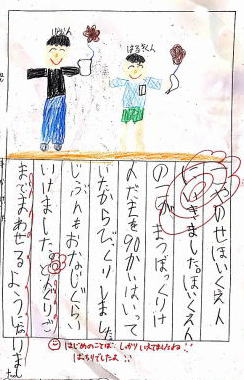 はるくん
のせほいくえん
いきました。ほいくえん
のこが、まつぼっくりけ
んだまを90かいはいって
いたからびっくりしました
じぶんもおなじくらい
いけました。どんぐりご
までまわせるようになりました
はじめのことば、しっかりいえてましたね!!
ばっちりでしたよ!!